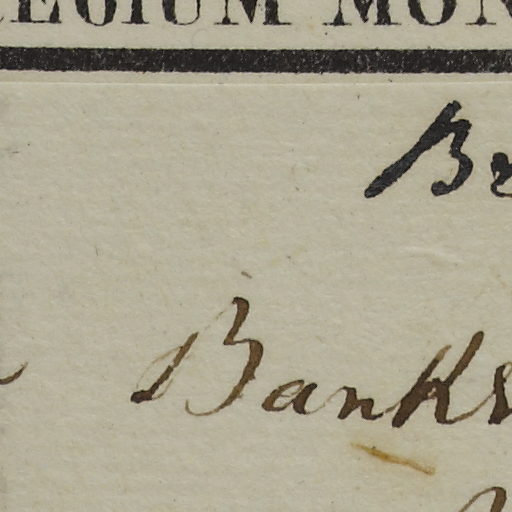 EGIUM MON
Br
Banks